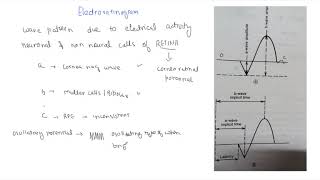 Electroretinogram
wave pattern due to electrical activity
neuronal & non neural cells of RETINA
a → Cornea neg wave
corneo retinal
potential
b → muller cells / Bipolar
C → RPE → inconsistent
oscillatory potential →
oscillating type when
a-wave amplitude
b-wave
O
C
b-wave
implicit time
a-wave
implicit time
Latency